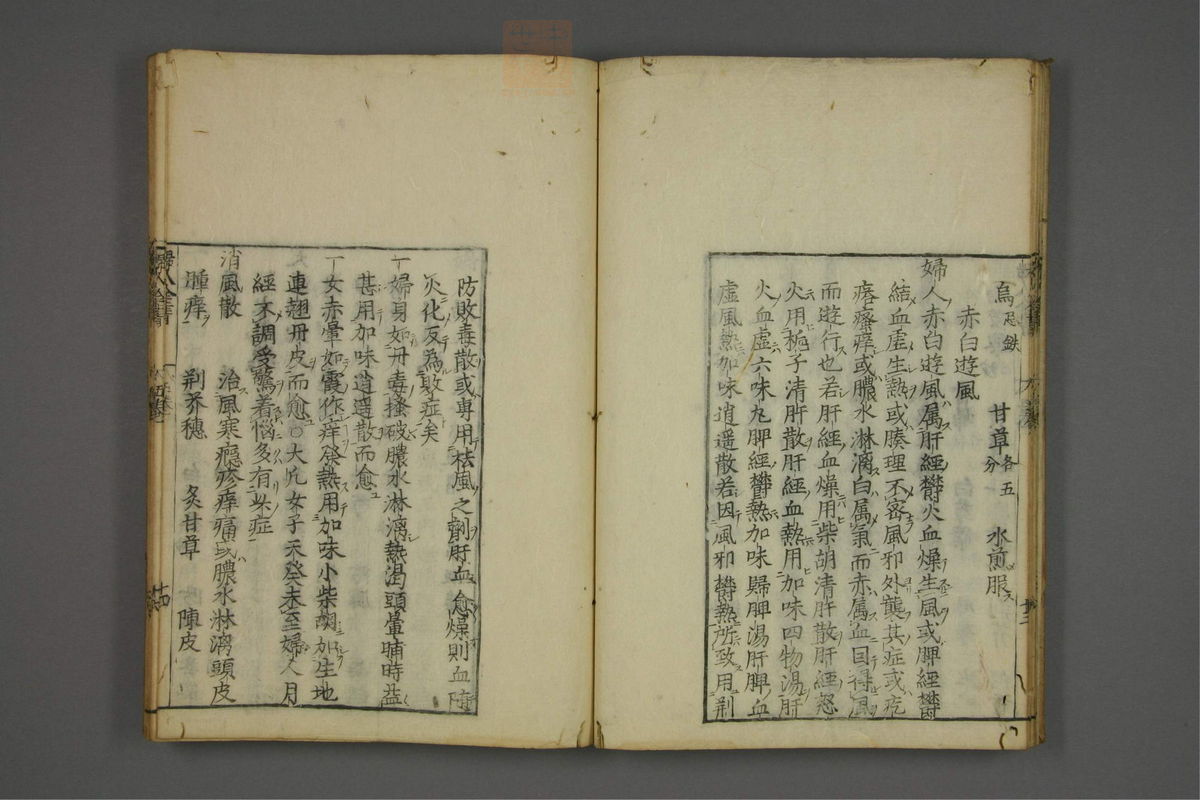 烏尽鉄 甘草各五分 水煎服
赤白遊風
婦人赤白遊風属肝經欝火血燥生風或脾經欝
結血虛生熱或腠理不密風邪外襲其症或疙
瘩瘙痒或膿水淋漓白属氣而赤属血因得風
而遊行也若肝經血燥用柴胡清肝散肝經怒
火用梔子清肝散肝經血熱用加味四物湯肝
火血虛六味丸脾經欝熱加味歸脾湯肝脾血
虛風熱加味逍遥散若因風邪欝熱所致用荆
防敗毒散或専用祛風之劑肝血愈燥則血随
火化反為敗症矣
一婦身如丹毒搔破膿水淋漓熱渴頭暈晡時益
甚用加味逍遥散而愈
一女赤暈如霞作痒發熱用加味小柴胡加生地
連翹丹皮而愈○大凢女子天癸未至婦人月
經不調受驚着惱多有此症
消風散 治風寒癮疹痒痛或膿水淋漓頭皮
腫痒 荆芥穗 炙甘草 陳皮